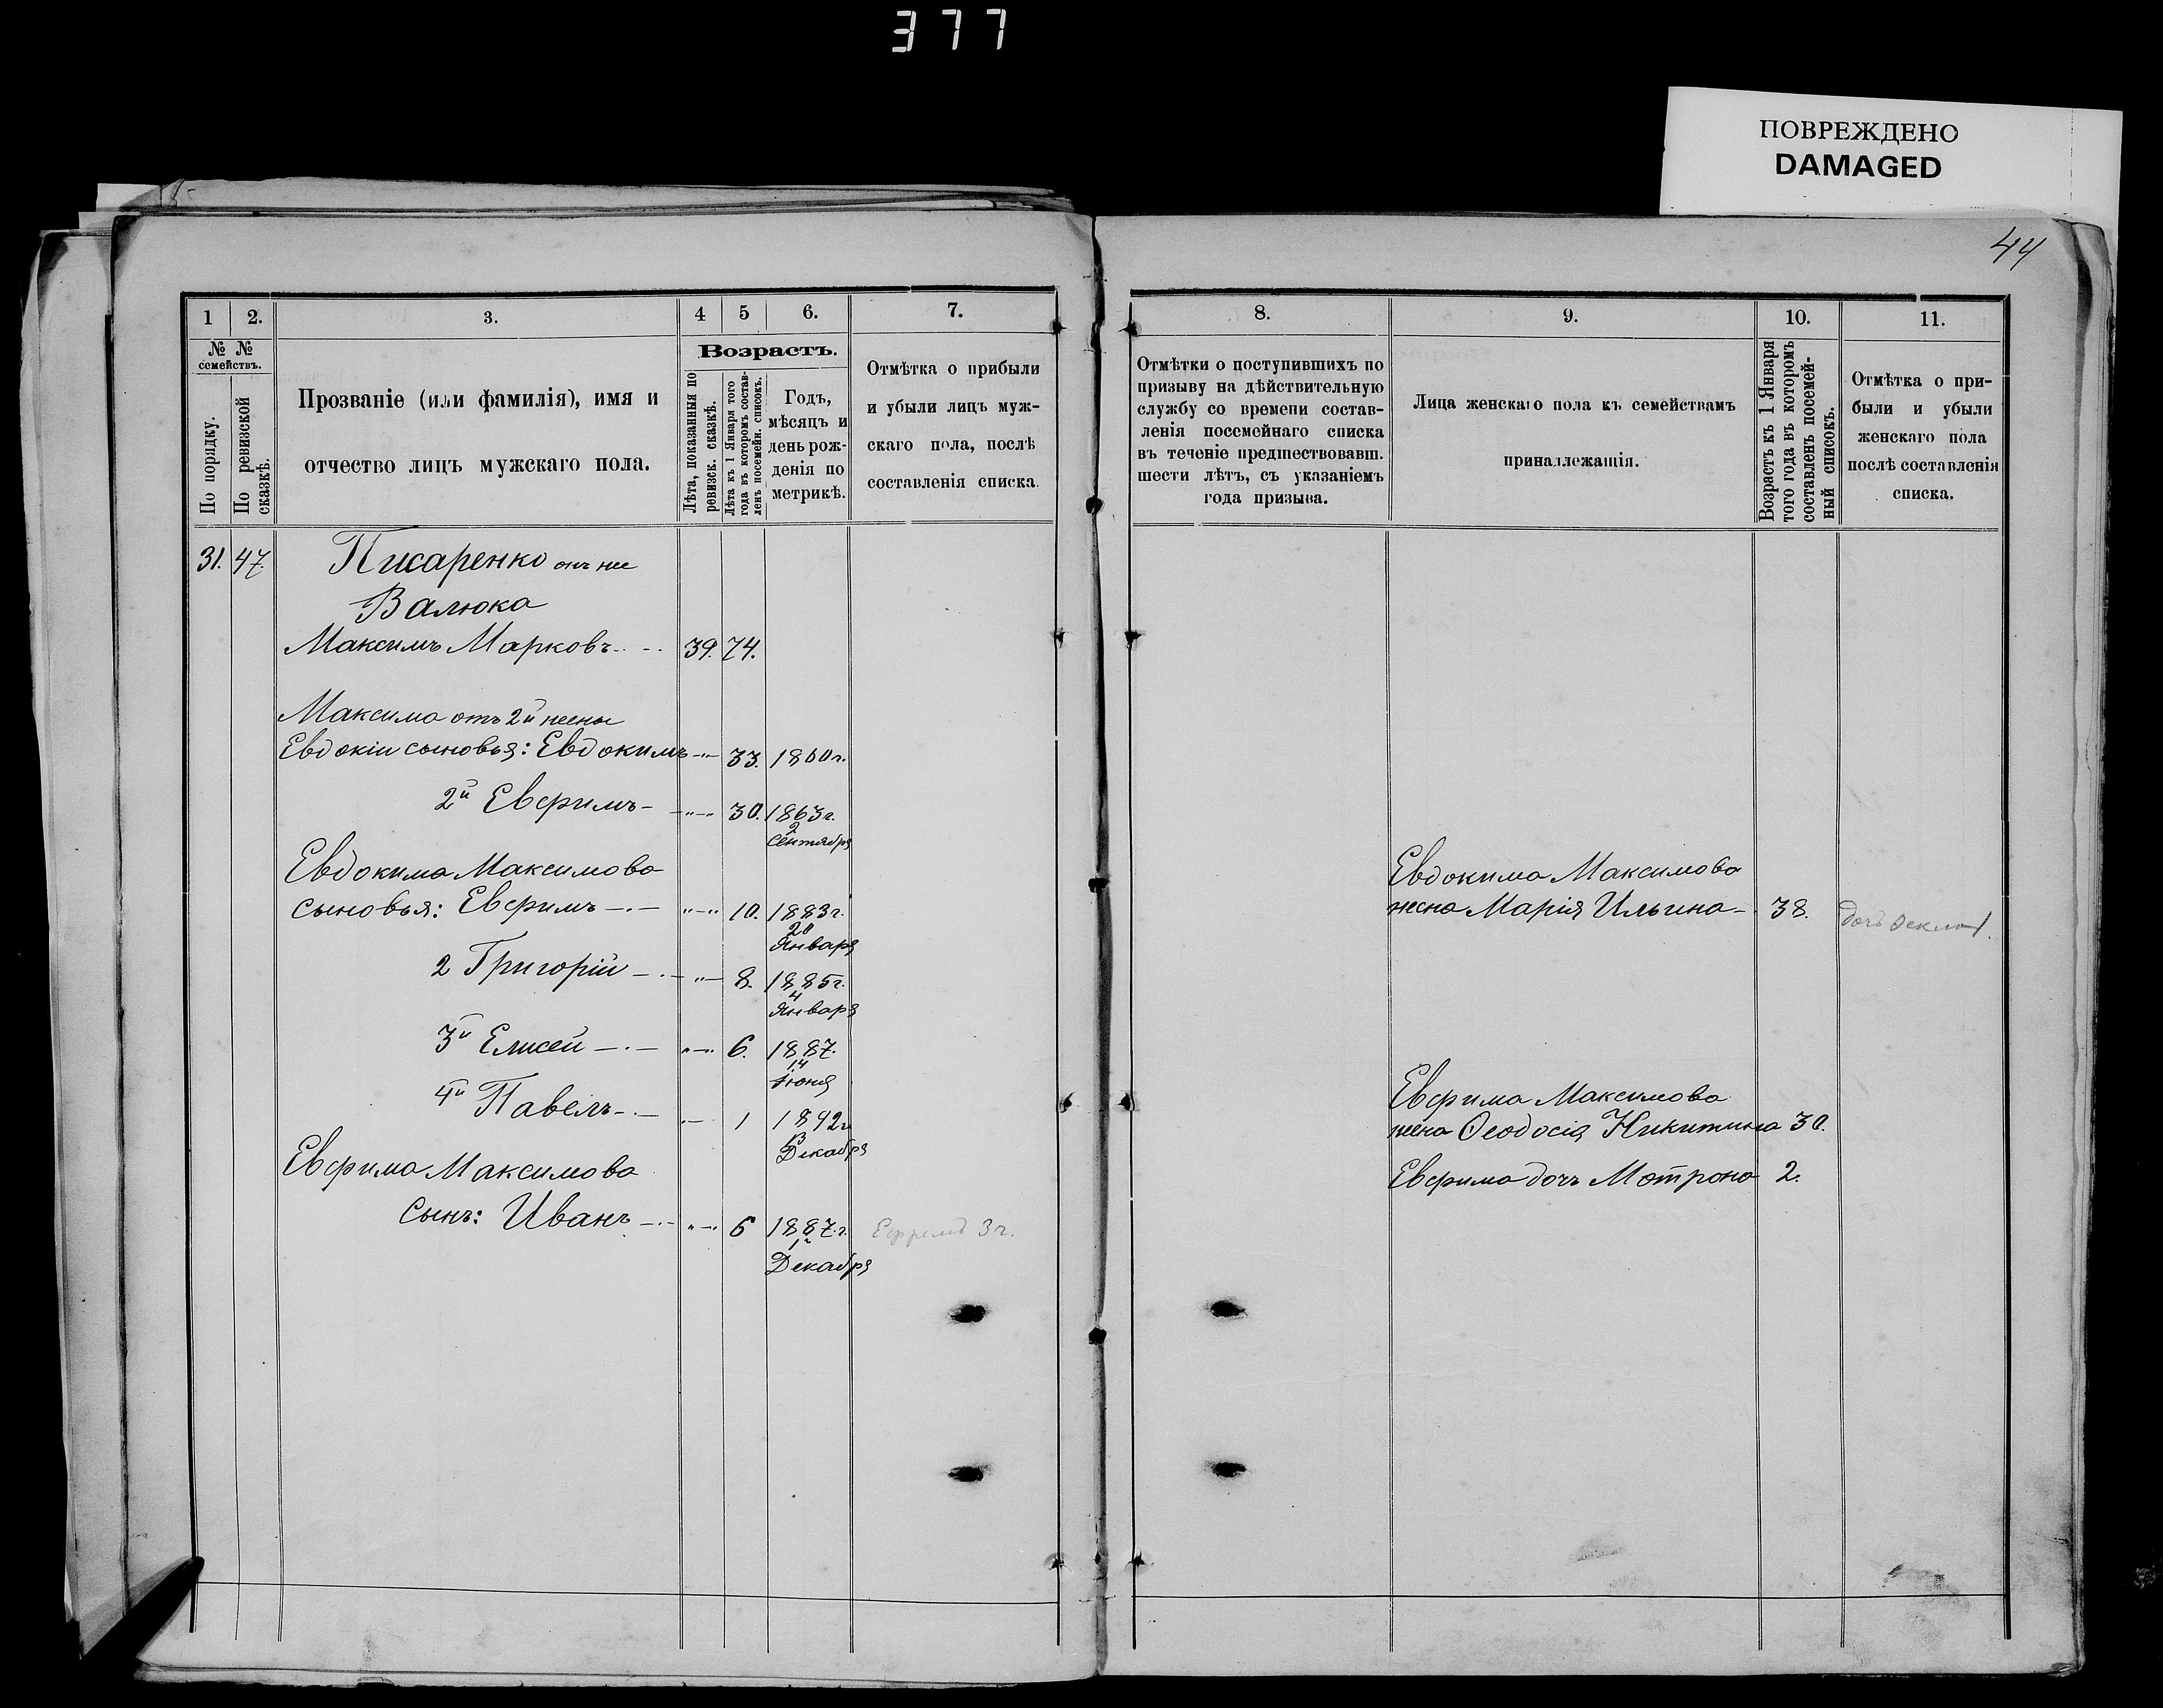 377
ПОВРЕЖДЕНО
DAMAGED
44
1 2. 3. 4 5 6. 7.
№ № семействъ.
По порядку.
По ревизской сказкѣ.
Прозваніе (или фамилія), имя и
отчество лицъ мужскаго пола.
Возрастъ.
Лѣта, показанныя по
ревизск. сказкѣ.
Лѣта къ 1 Января того
года въ которомъ состав-
ленъ посемейн. списокъ.
Годъ,
мѣсяцъ и
день рож-
денія по
метрикѣ.
Отмѣтка о прибыли
и убыли лицъ муж-
скаго пола, послѣ
составленія списка.
31. 47. Писаренко онъ же
Валюка
Максимъ Марковъ 39. 74.
Максима отъ 2й жены
Евдокіи сыновья: Евдокимъ 33. 1860г.
2й Евфимъ 30. 1863г.
2
Сентября
Евдокима Максимова
сыновья: Евфимъ 10. 1883г.
20
Января
2 Григорій 8. 1885г.
4
Января
3й Елисей 6. 1887.
14
Іюня
4й Павелъ 1 1892г
13
Декабря
Евфима Максимова
сынъ: Иванъ 6 1887.г. Ефремъ 3 г.
Декабря
8. 9. 10. 11.
Отмѣтки о поступившихъ по
призыву на дѣйствительную
службу со времени состав-
ленія посемейнаго списка
въ теченіе предшествовавш.
шести лѣтъ, съ указаніемъ
года призыва.
Лица женскаго пола къ семействамъ
принадлежащія.
Возрастъ къ 1 Января
того года въ которомъ
составленъ посемей-
ный списокъ.
Отмѣтка о при-
были и убыли
женскаго пола
послѣ составленія
списка.
Евдокима Максимова
жена Марія Ильина 38. дочь
Евфима Максимова
жена Ѳеодосія Никитина 30.
Евфима дочь Мотрона 2.